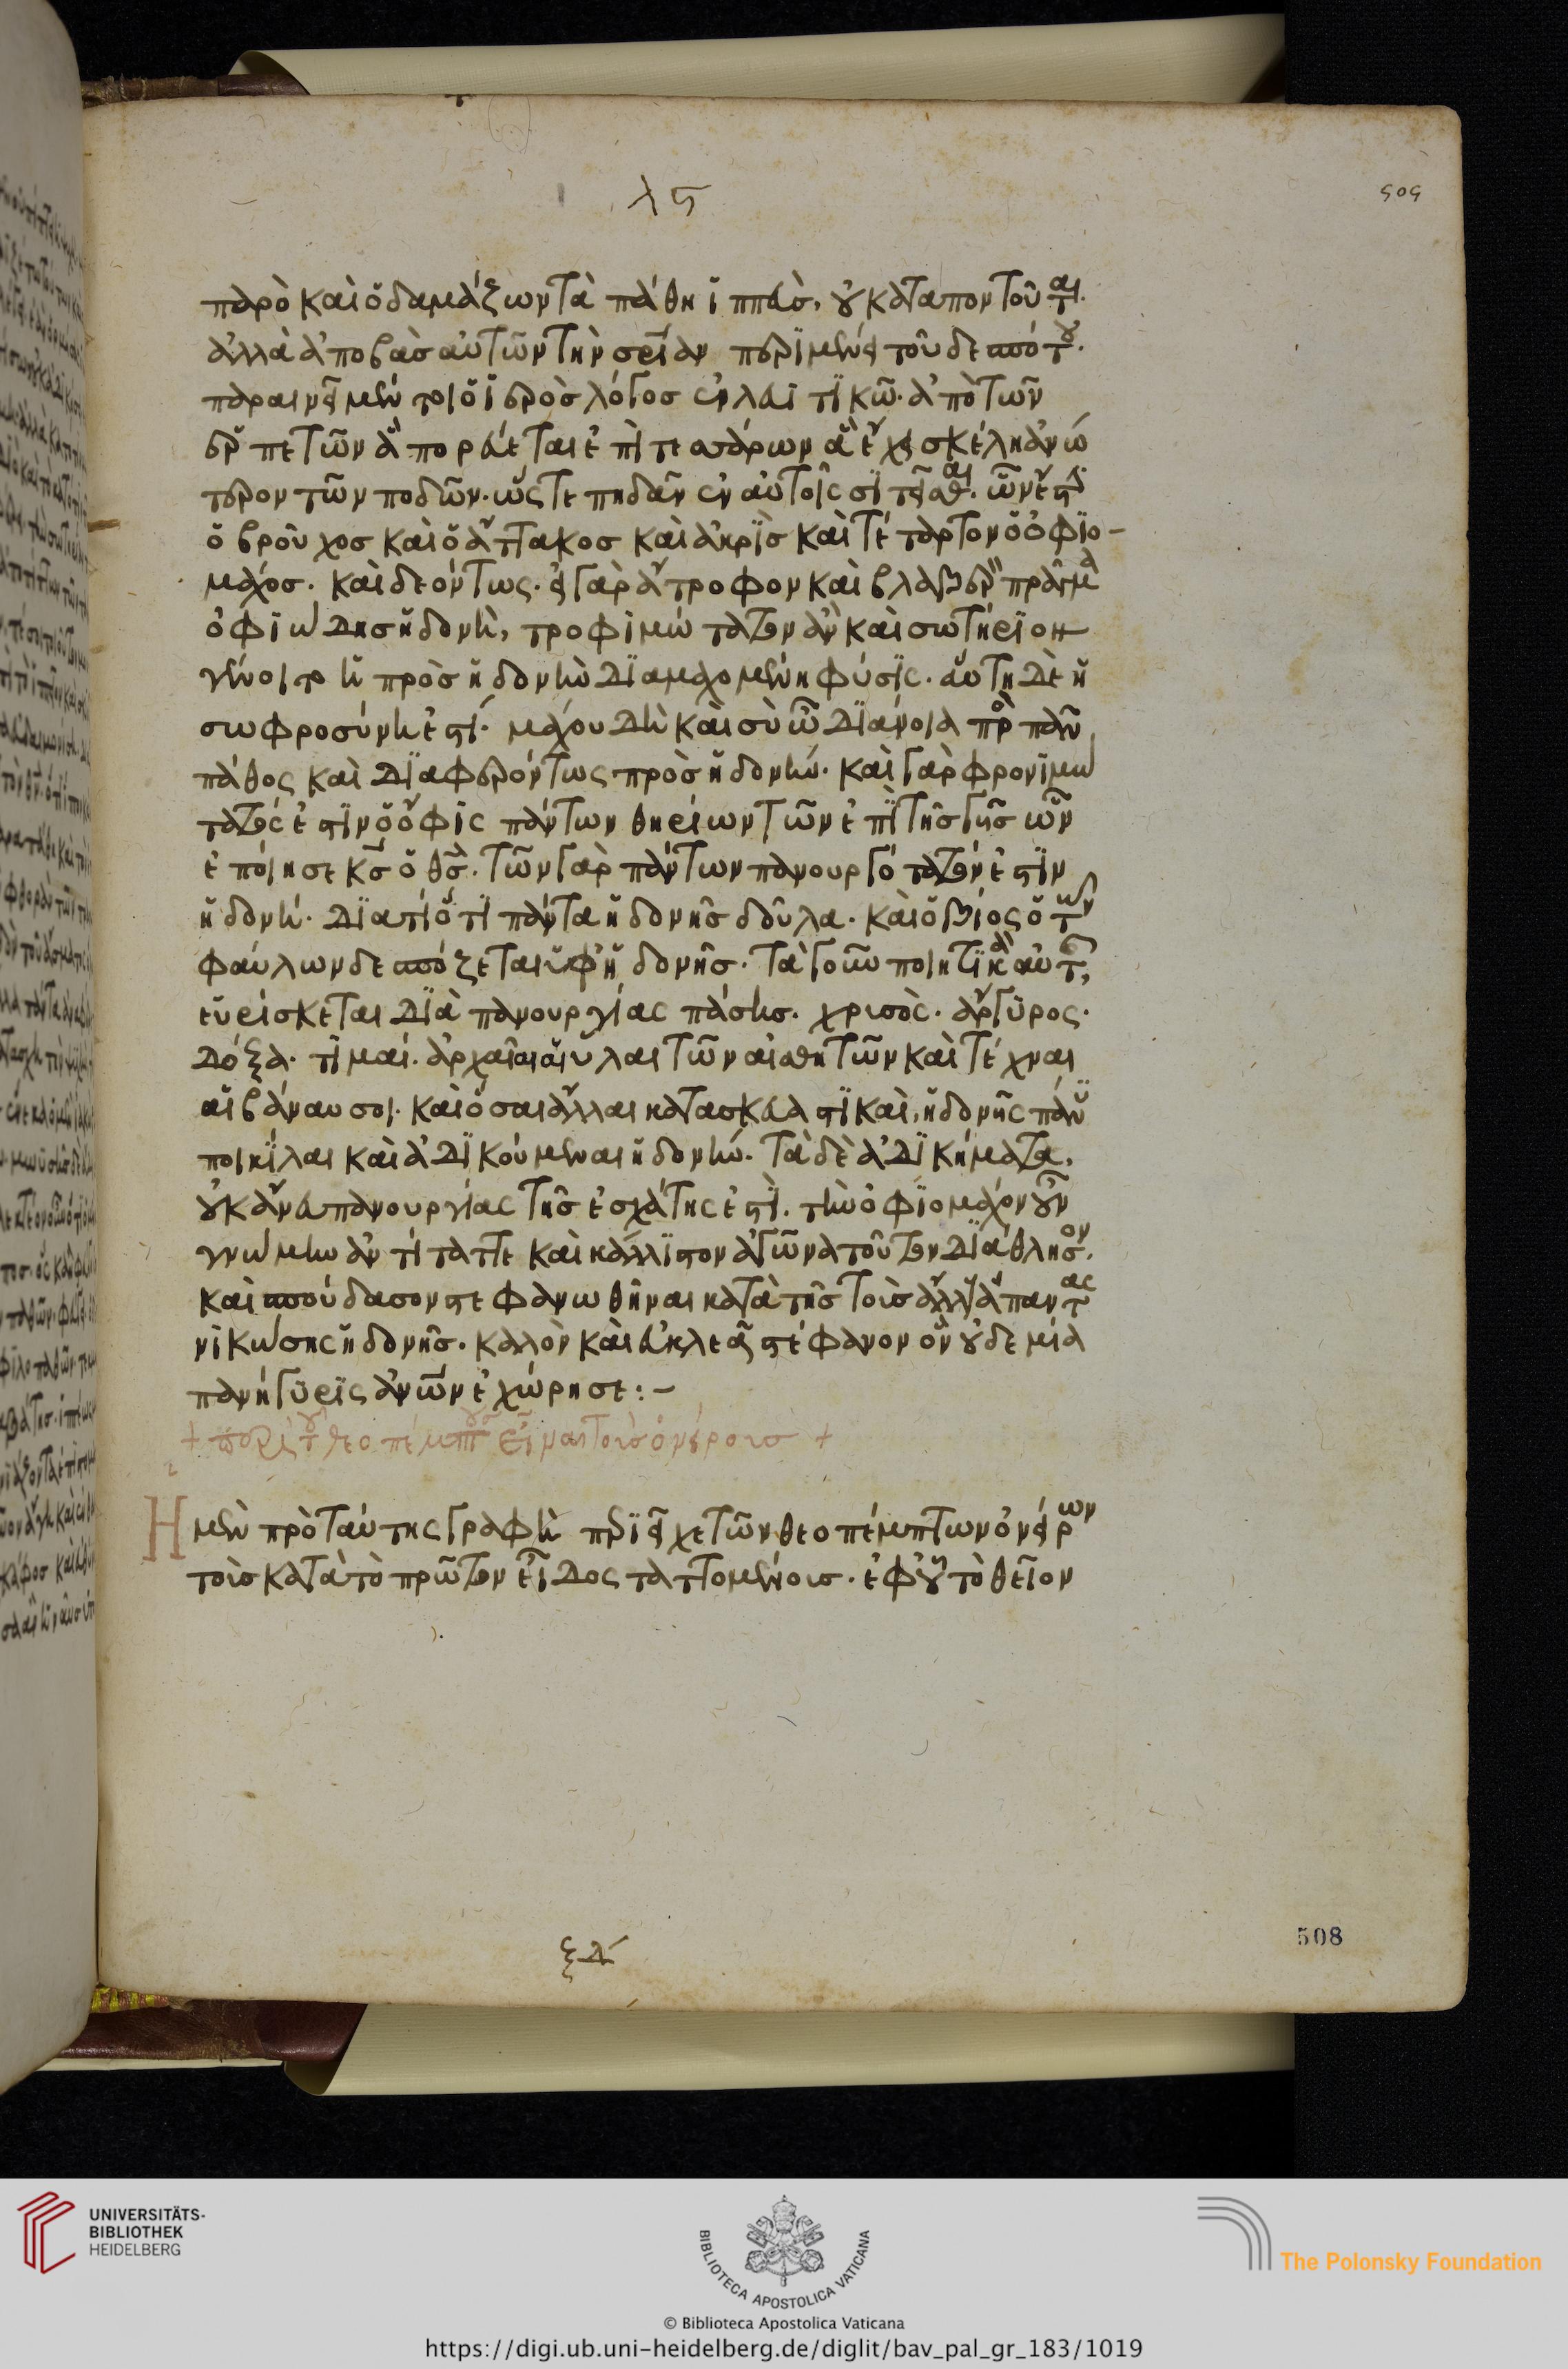 λϛ
505
παρὸ καὶ ὁ δαμάζων τὰ πάθη ἱππεὺσ, οὐ καταποντοῦται.
ἀλλὰ ἀποβὰσ αὐτῶν τὴν σωτηρίαν περιμένει τοῦ δεσπότου.
παραινεῖ μέν τοι ὁ ἱερὸσ λόγοσ ἐν λευϊτικῶ. ἀπὸ τῶν
ἑρπετῶν ἃ πορεύεται ἐπὶ τεσσάρων ἃ ἔχει σκέλη ἀνώ
τερον τῶν ποδῶν. ὥστε πηδᾶν ἐν αὐτοῖς σιτεῖσθαι. ὧν ἐστὶ
ὁ βροῦχοσ καὶ ὁ ἀττακοσ καὶ ἀκρὶσ καὶ τέταρτον ὁ ὀφιο-
μάχοσ. καὶ δεόντως. εἰ γὰρ ἄτροφον καὶ βλαβερὸν πρᾶγμα
ὀφιώδησ ἡδονὴ, τροφιμώτατον ἂν καὶ σωτήριον
γένοιτο ἡ πρὸσ ἡδονὴν διαμαχομένη φύσις. αὕτη δὲ ἡ
σωφροσύνη ἐστί. μάχου δὴ καὶ σὺ ὦ διάνοια πρὸς πᾶν
πάθος καὶ διαφερόντως πρὸσ ἡδονήν. καὶ γὰρ φρονιμώ
τατός ἐστιν ὁ ὄφις πάντων θηρίων τῶν ἐπὶ τῆσ γῆσ ὧν
ἐποίησε κσ ὁ θσ. τῶν γὰρ πάντων πανουργότατόν ἐστιν
ἡδονή. διατί ὅτι πάντα ἡδονῆσ δοῦλα. καὶ ὁ βίος ὁ τῶν
φαύλων δεσπόζεται ὑφ' ἡδονῆσ. τὰ γοῦν ποιητικὰ αὐτῆς,
εὑρίσκεται διὰ πανουργίας πάσησ. χρυσὸς. ἄργυρος.
δόξα. τιμαί. ἀρχαὶ αἱ ὗλαι τῶν αἰσθητῶν καὶ τέχναι
αἱ βάναυσοι. καὶ ὅσαι ἄλλαι κατασκευαστικαὶ, ἡδονῆς πάνυ
ποικίλαι καὶ ἀδικούμεναι ἡδονήν. τὰ δὲ ἀδικήματα,
οὐκ ἄνευ πανουργίας τῆσ ἐσχάτης ἐστί. τὴν ὀφιομάχον οὖν
γνώμην ἀντίταττε καὶ κάλλιστον ἀγῶνα τοῦτον διάθλησον.
καὶ σπούδασον στεφανωθῆναι κατὰ τῆσ τοὺσ ἄλλους ἅπαντας
νικώσης ἡδονῆσ. καλὸν καὶ εὐκλεᾶ στέφανον ὃν οὐδεμία
πανήγυρις ἀνων ἐχώρησε:-
+ περὶ τοῦ θεοπέμπτους εἶναι τοὺσ ὀνείρουσ +
Ἡ μὲν πρὸ ταύτης γραφὴ περιεῖχε τῶν θεοπέμπτων ὀνείρων
τοὺσ κατὰ τὸ πρῶτον εἶδος ταττομένουσ. ἐφ' οὗ τὸ θεῖον
ξδ
508
UNIVERSITÄTS-
BIBLIOTHEK
HEIDELBERG
BIBLIOTECA APOSTOLICA VATICANA
The Polonsky Foundation
© Biblioteca Apostolica Vaticana
https://digi.ub.uni-heidelberg.de/diglit/bav_pal_gr_183/1019